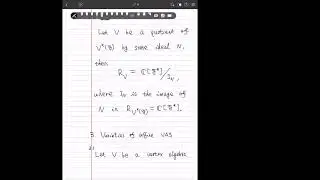 Let V be a quotient of
V^k(g) by some ideal N,
then
R_V = ℂ[g*]/I_V,
where I_V is the image of
N in R_{V^k(g)} = ℂ[g*].
3. Varieties of affine VAs
Let V be a vertex algebra